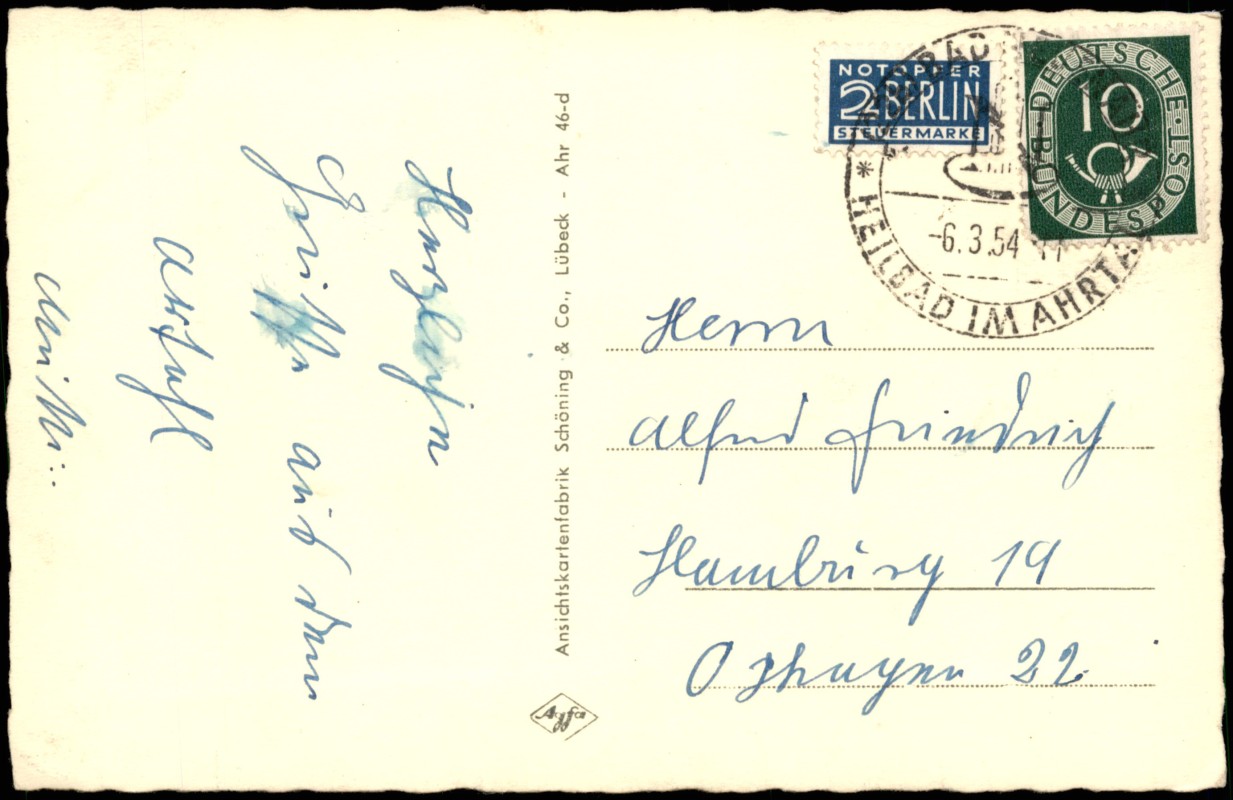 Herzliche
Grüße aus dem
Ahrtahl
NOTOPFER
2 BERLIN
STEUERMARKE
DEUTSCHE BUNDESPOST
10
BAD
-6.3.54
* HEILBAD IM AHRTAL
Ansichtskartenfabrik Schöning & Co., Lübeck - Ahr 46-d
Agfa
Herrn
Alfred Friedrich
Hamburg 19
22